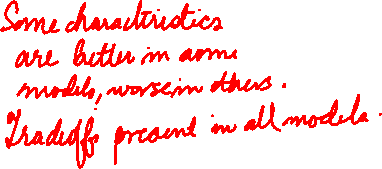 Some characteristics
are better in some
models, worse in others.
Tradeoffs present in all models.